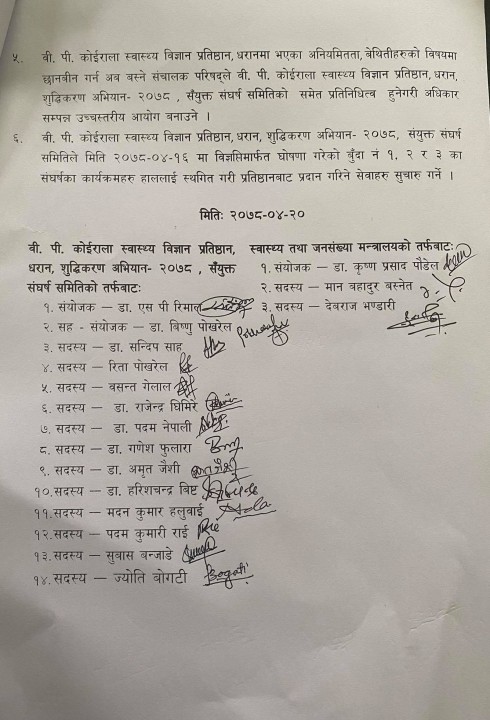 ५. बी. पी. कोईराला स्वास्थ्य विज्ञान प्रतिष्ठान, धरानमा भएका अनियमितता, बेथितीहरुको विषयमा
छानवीन गर्न अब बस्ने संचालक परिषद्ले वी. पी. कोईराला स्वास्थ्य विज्ञान प्रतिष्ठान, धरान,
शुद्धिकरण अभियान- २०७८ , सँयुक्त संघर्ष समितिको समेत प्रतिनिधित्व हुनेगरी अधिकार
सम्पन्न उच्चस्तरीय आयोग बनाउने ।
६. वी. पी. कोईराला स्वास्थ्य विज्ञान प्रतिष्ठान, धरान, शुद्धिकरण अभियान- २०७८, संयुक्त संघर्ष
समितिले मिति २०७८-०४-१६ मा विज्ञप्तिमार्फत घोषणा गरेको बुँदा नं १, २ र ३ का
संघर्षका कार्यक्रमहरु हाललाई स्थगित गरी प्रतिष्ठानबाट प्रदान गरिने सेवाहरु सुचारु गर्ने ।
मितिः २०७८-०४-२०
वी. पी. कोईराला स्वास्थ्य विज्ञान प्रतिष्ठान,
धरान, शुद्धिकरण अभियान- २०७८ , सँयुक्त
संघर्ष समितिको तर्फबाटः
१. संयोजक – डा. एस पी रिमाल
२. सह - संयोजक – डा. बिष्णु पोखरेल
३. सदस्य – डा. सन्दिप साह
४. सदस्य – रिता पोखरेल
५. सदस्य – वसन्त गेलाल
६. सदस्य – डा. राजेन्द्र घिमिरे
७. सदस्य – डा. पदम नेपाली
८. सदस्य – डा. गणेश फुलारा
९. सदस्य – डा. अमृत जैशी
१०. सदस्य – डा. हरिशचन्द्र बिष्ट
११. सदस्य – मदन कुमार हलुवाई
१२. सदस्य – पदम कुमारी राई
१३. सदस्य – सुवास बन्जाडे
१४. सदस्य – ज्योति बोगटी
Bogati
स्वास्थ्य तथा जनसंख्या मन्त्रालयको तर्फबाटः
१. संयोजक – डा. कृष्ण प्रसाद पौडेल
२. सदस्य – मान बहादुर बस्नेत
३. सदस्य – देबराज भण्डारी